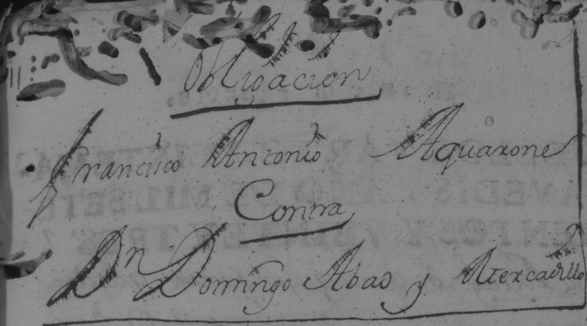 Obligacion
Francisco Antonio Aquarone
Contra
Dn Domingo Abad y